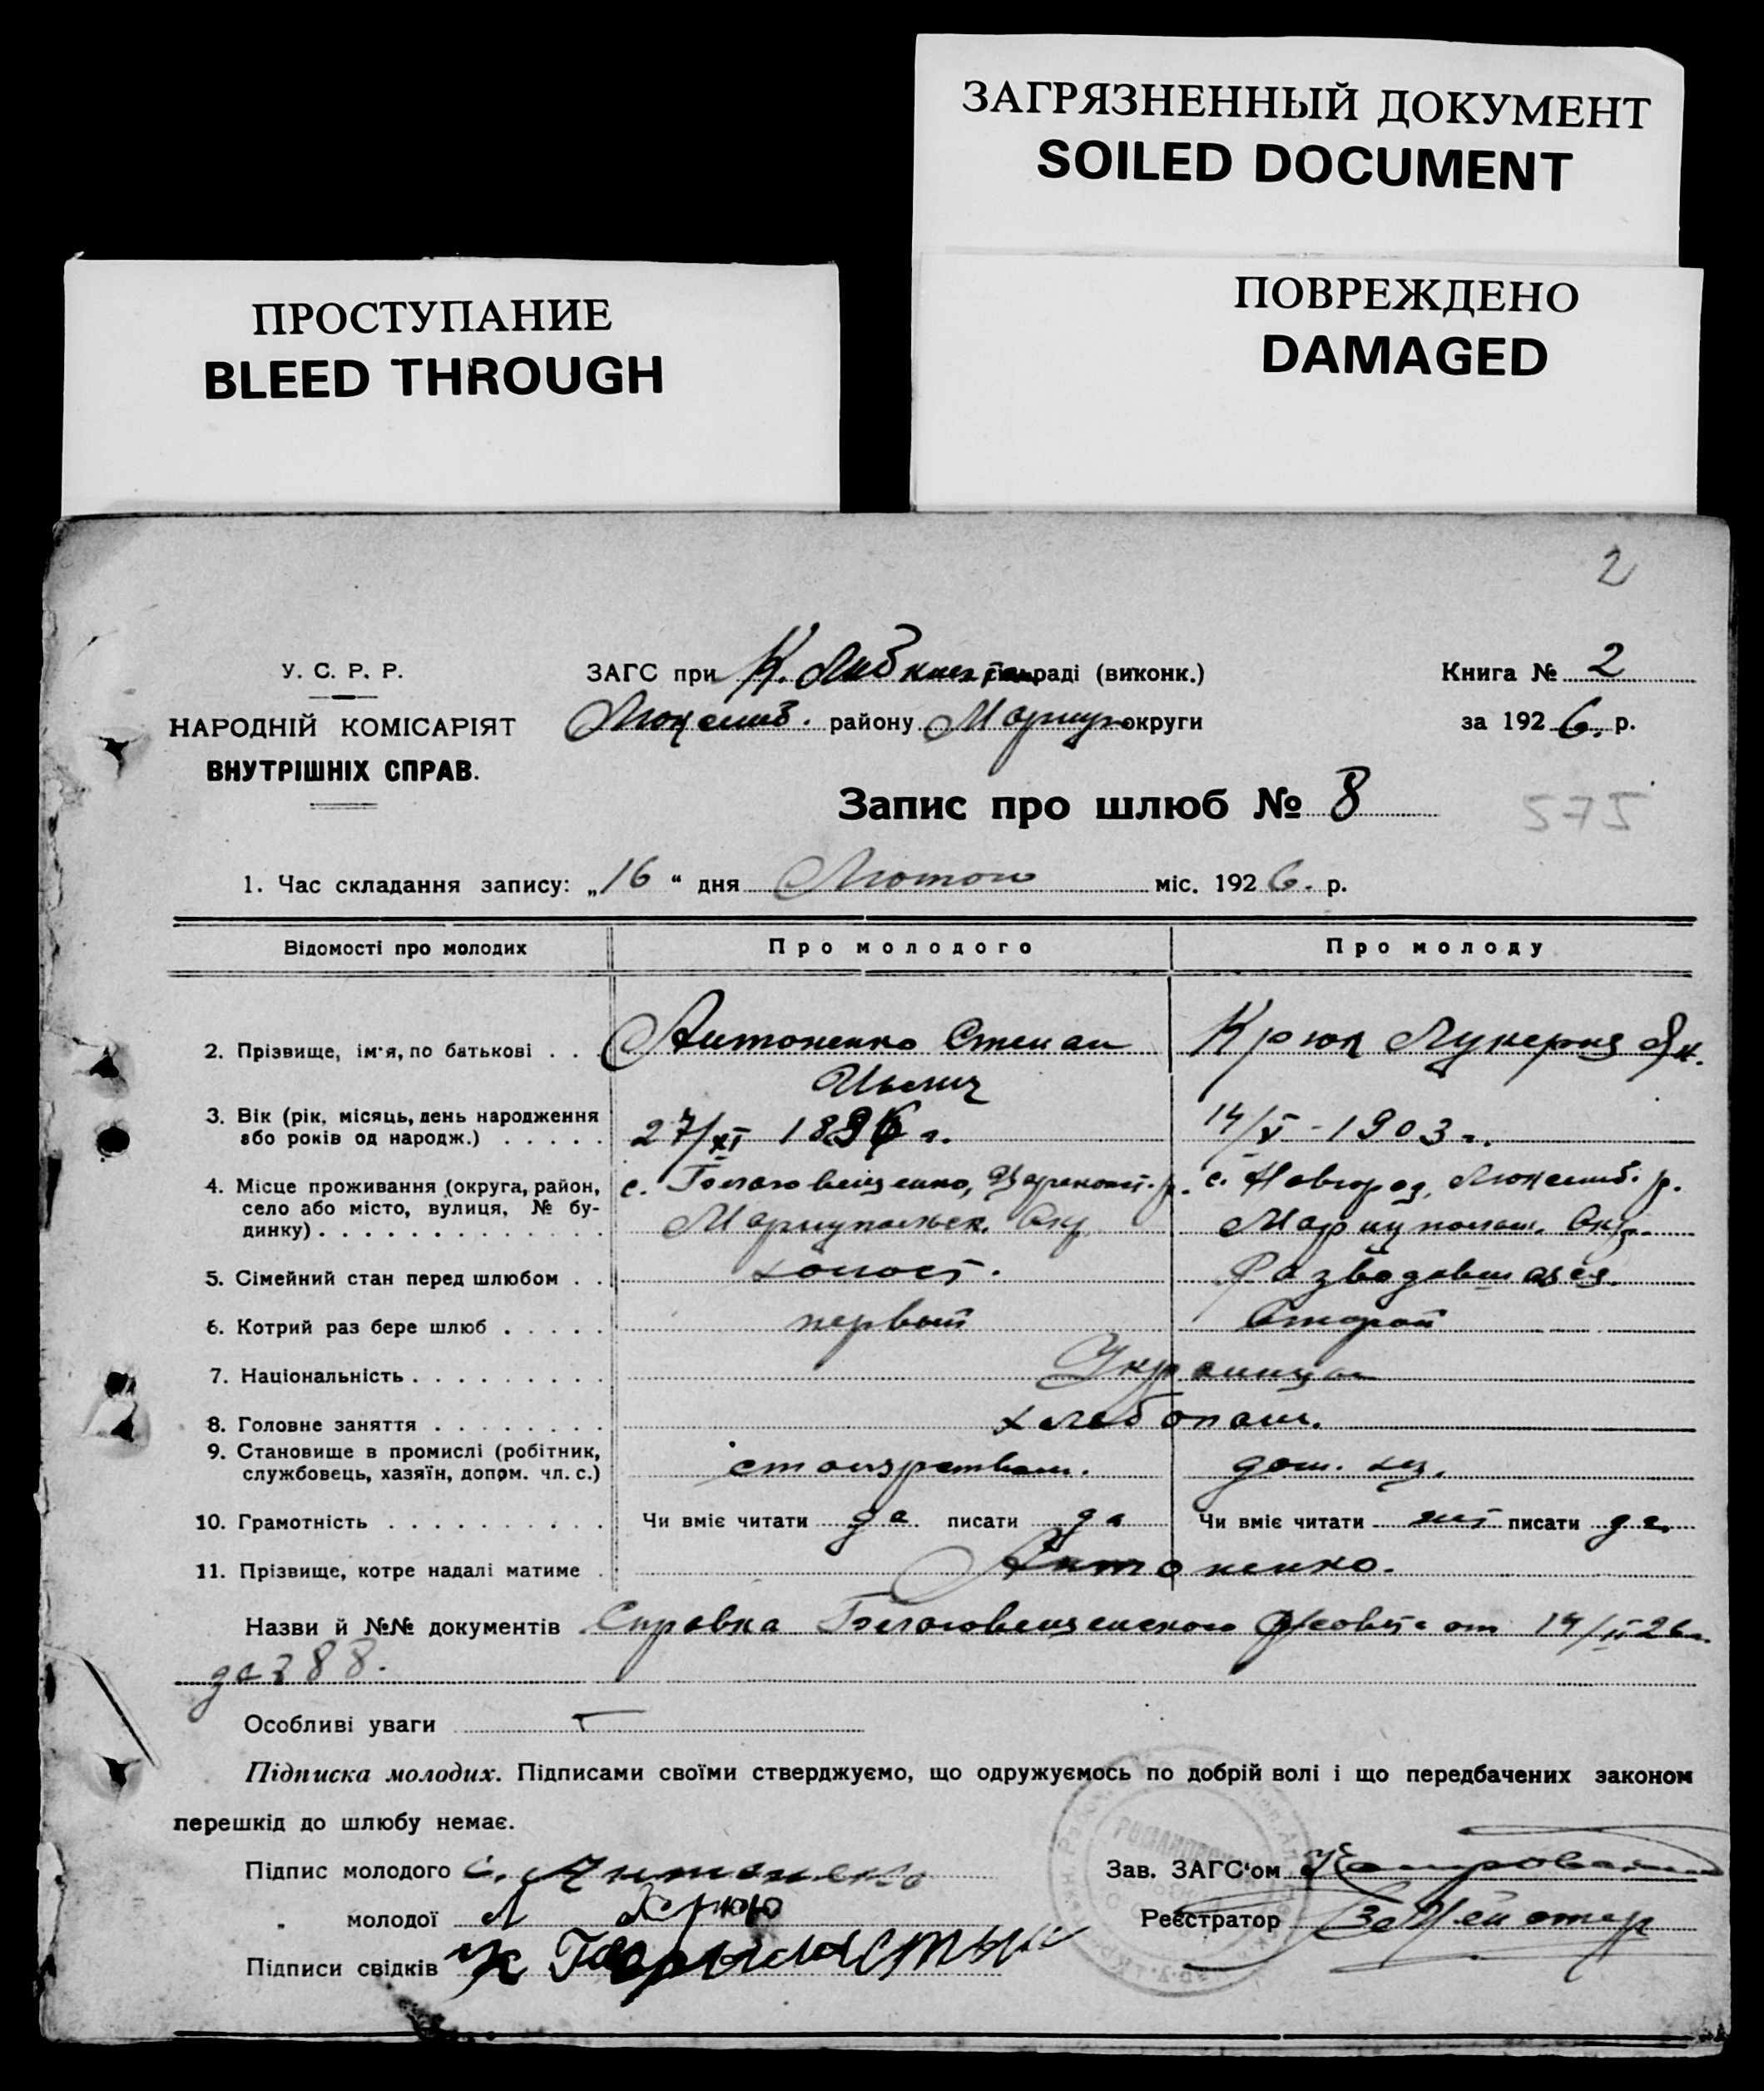 ЗАГРЯЗНЕННЫЙ ДОКУМЕНТ
SOILED DOCUMENT
ПРОСТУПАНИЕ
BLEED THROUGH
ПОВРЕЖДЕНО
DAMAGED
2
У. С. Р. Р.
НАРОДНІЙ КОМІСАРІЯТ
ВНУТРІШНІХ СПРАВ.
ЗАГС при К. раді (виконк.)
району Мариуп округи
Книга № 2
за 1926. р.
Запис про шлюб № 8
575
1. Час складання запису: „16“ дня Лютого міс. 1926. р.
Відомості про молодих
Про молодого
Про молоду
2. Прізвище, ім'я, по батькові . . Антоненко Степан Крюк Лукерия Як.
Ильич
3. Вік (рік, місяць, день народження
або років од народж.) . . . . . 27/XI 1896 г. 14/V - 1903 г.
4. Місце проживання (округа, район, с. Благовещенка, р. с. Новгород, р.
село або місто, вулиця, № бу-
динку) . . . . . . . . . . . . . Мариупольск. Окр. Мариупольск. Окр.
5. Сімейний стан перед шлюбом . . холост. Разводившаяся
6. Котрий раз бере шлюб . . . . . первый Второй
7. Національність . . . . . . . . . Украинцы
8. Головне заняття . . . . . . . . хлебопаш.
9. Становище в промислі (робітник,
службовець, хазяїн, допом. чл. с.) дом. хоз.
10. Грамотність . . . . . . . . . . Чи вміє читати да писати да Чи вміє читати писати да
11. Прізвище, котре надалі матиме . Антоненко.
Назви й №№ документів Справка Благовещенского от 14/II 26 г.
за № 88.
Особливі уваги —
Підписка молодих. Підписами своїми стверджуємо, що одружуємось по добрій волі і що передбачених законом
перешкід до шлюбу немає.
Підпис молодого С. Антоненко
Зав. ЗАГС'ом
„ молодої Л Крюк
Реєстратор
Підписи свідків